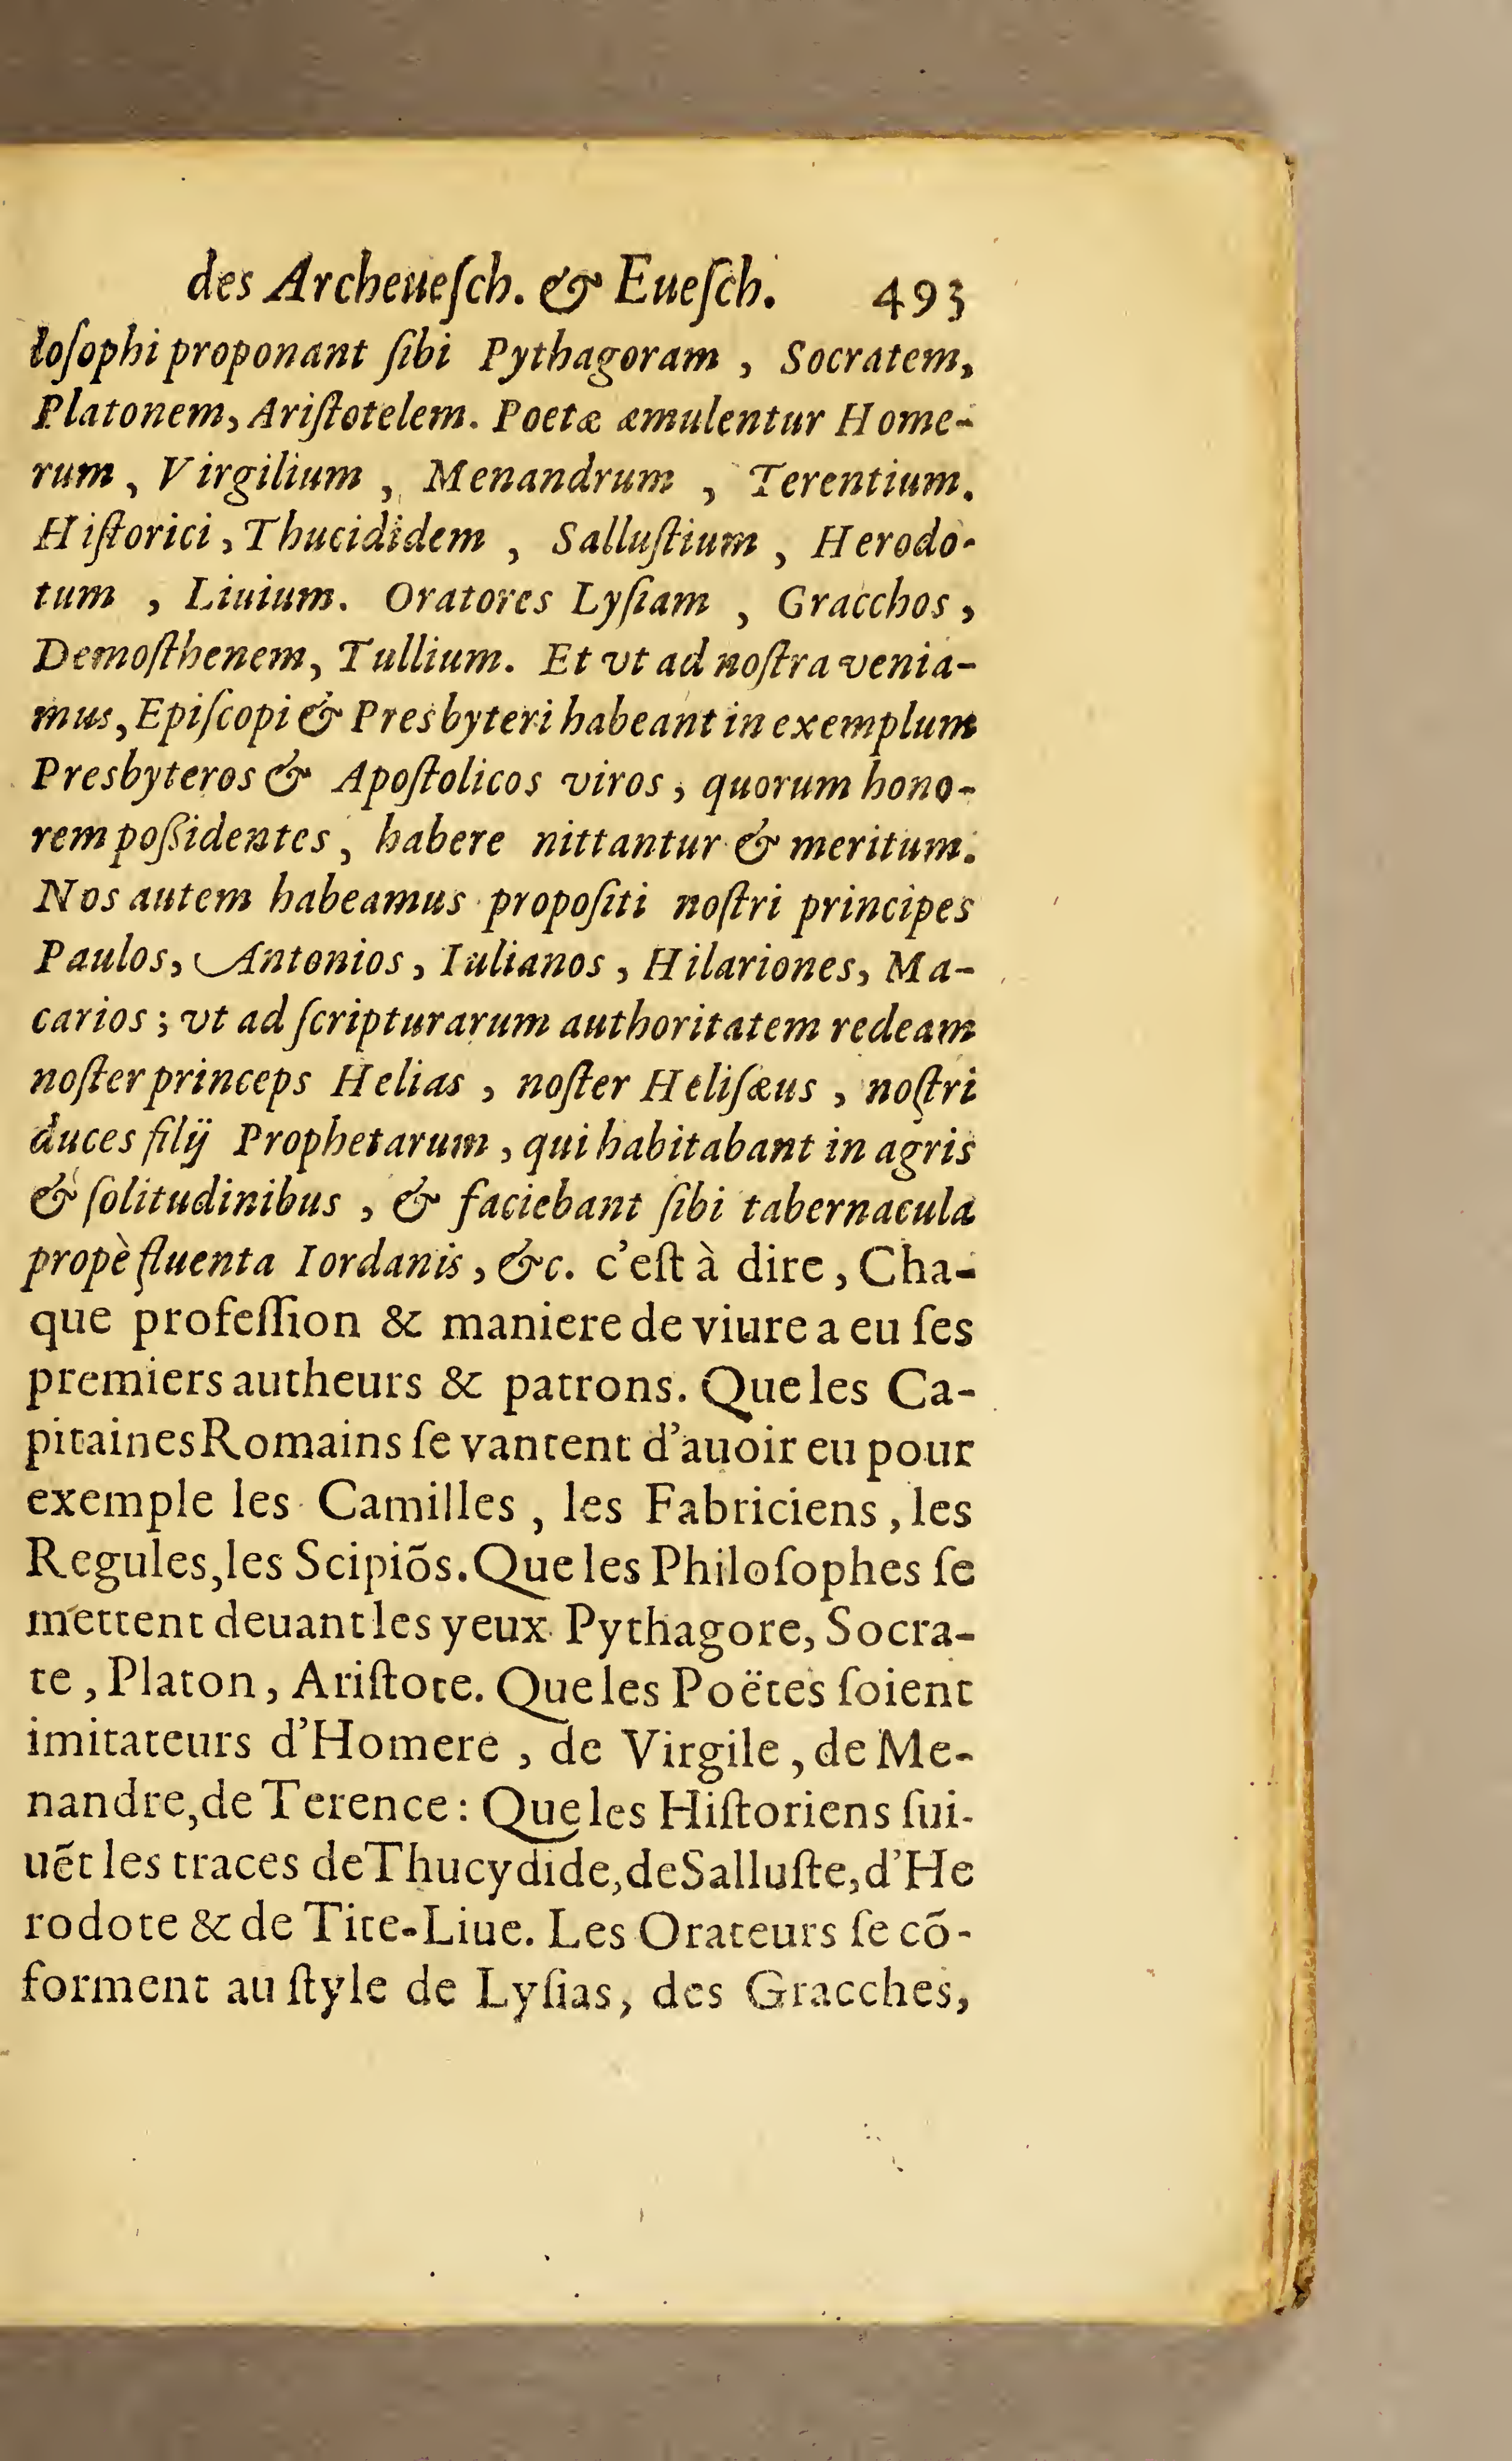 des Archeueſch. & Eueſch. 493
loſophi proponant ſibi Pythagoram , Socratem,
Platonem, Ariſtotelem. Poetæ æmulentur Home-
rum , Virgilium , Menandrum , Terentium.
Hiſtorici , Thucididem , Salluſtium , Herodo-
tum , Liuium. Oratores Lyſiam , Gracchos ,
Demoſthenem, Tullium. Et vt ad noſtra venia-
mus, Epiſcopi & Presbyteri habeant in exemplum
Presbyteros & Apoſtolicos viros , quorum hono-
rem poſsidentes , habere nittantur & meritum.
Nos autem habeamus propoſiti noſtri principes
Paulos, Antonios , Iulianos , Hilariones, Ma-
carios ; vt ad ſcripturarum authoritatem redeam
noſter princeps Helias , noſter Heliſæus , noſtri
duces filij Prophetarum , qui habitabant in agris
& ſolitudinibus , & faciebant ſibi tabernacula
propè fluenta Iordanis , &c. c'eſt à dire , Cha-
que profeſſion & maniere de viure a eu ſes
premiers autheurs & patrons. Que les Ca-
pitaines Romains ſe vantent d'auoir eu pour
exemple les Camilles , les Fabriciens , les
Regules, les Scipiõs. Que les Philoſophes ſe
mettent deuant les yeux Pythagore, Socra-
te , Platon , Ariſtote. Que les Poëtes ſoient
imitateurs d'Homere , de Virgile , de Me-
nandre, de Terence : Que les Hiſtoriens ſui-
uẽt les traces de Thucydide, de Salluſte, d'He
rodote & de Tite-Liue. Les Orateurs ſe cõ-
forment au ſtyle de Lyſias, des Gracches,